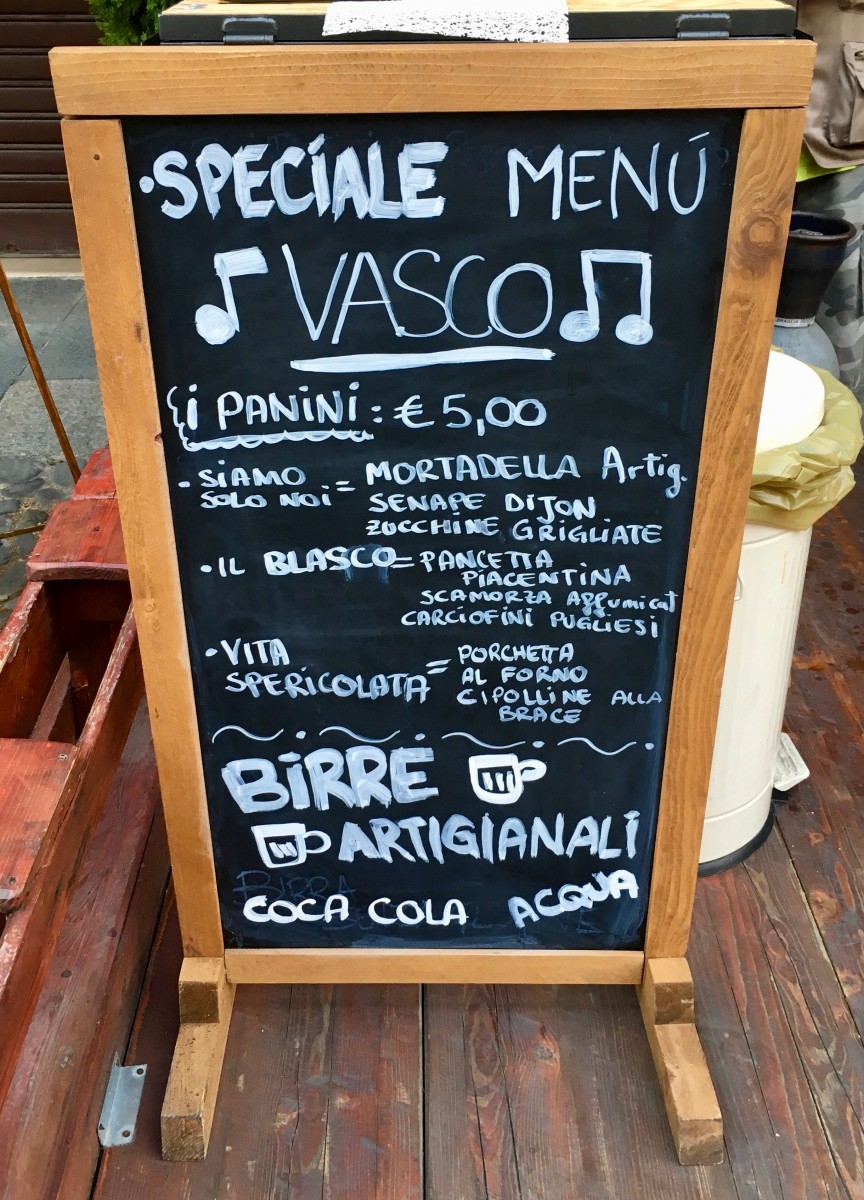 •SPECIALE MENÚ
VASCO
i PANINI : € 5,00
- SIAMO SOLO NOI = MORTADELLA Artig.
SENAPE DIJON
ZUCCHINE GRIGLIATE
• IL BLASCO = PANCETTA
PIACENTINA
SCAMORZA Affumicat
CARCIOFINI PUGLIESI
• VITA SPERICOLATA = PORCHETTA
AL FORNO
CIPOLLINE ALLA
BRACE
BIRRE
ARTIGIANALI
BIRRA
COCA COLA ACQUA